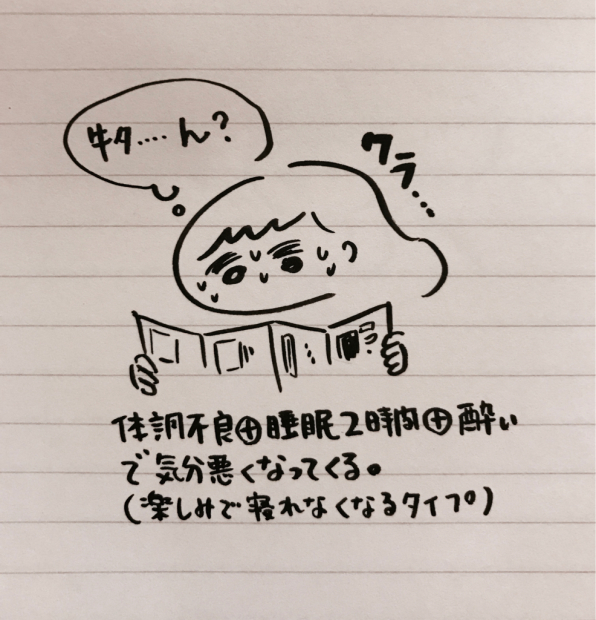 牛タ‥‥ん?
クラ…
体調不良⊕睡眠2時間⊕酔い
で気分悪くなってくる。
(楽しみで寝れなくなるタイプ)